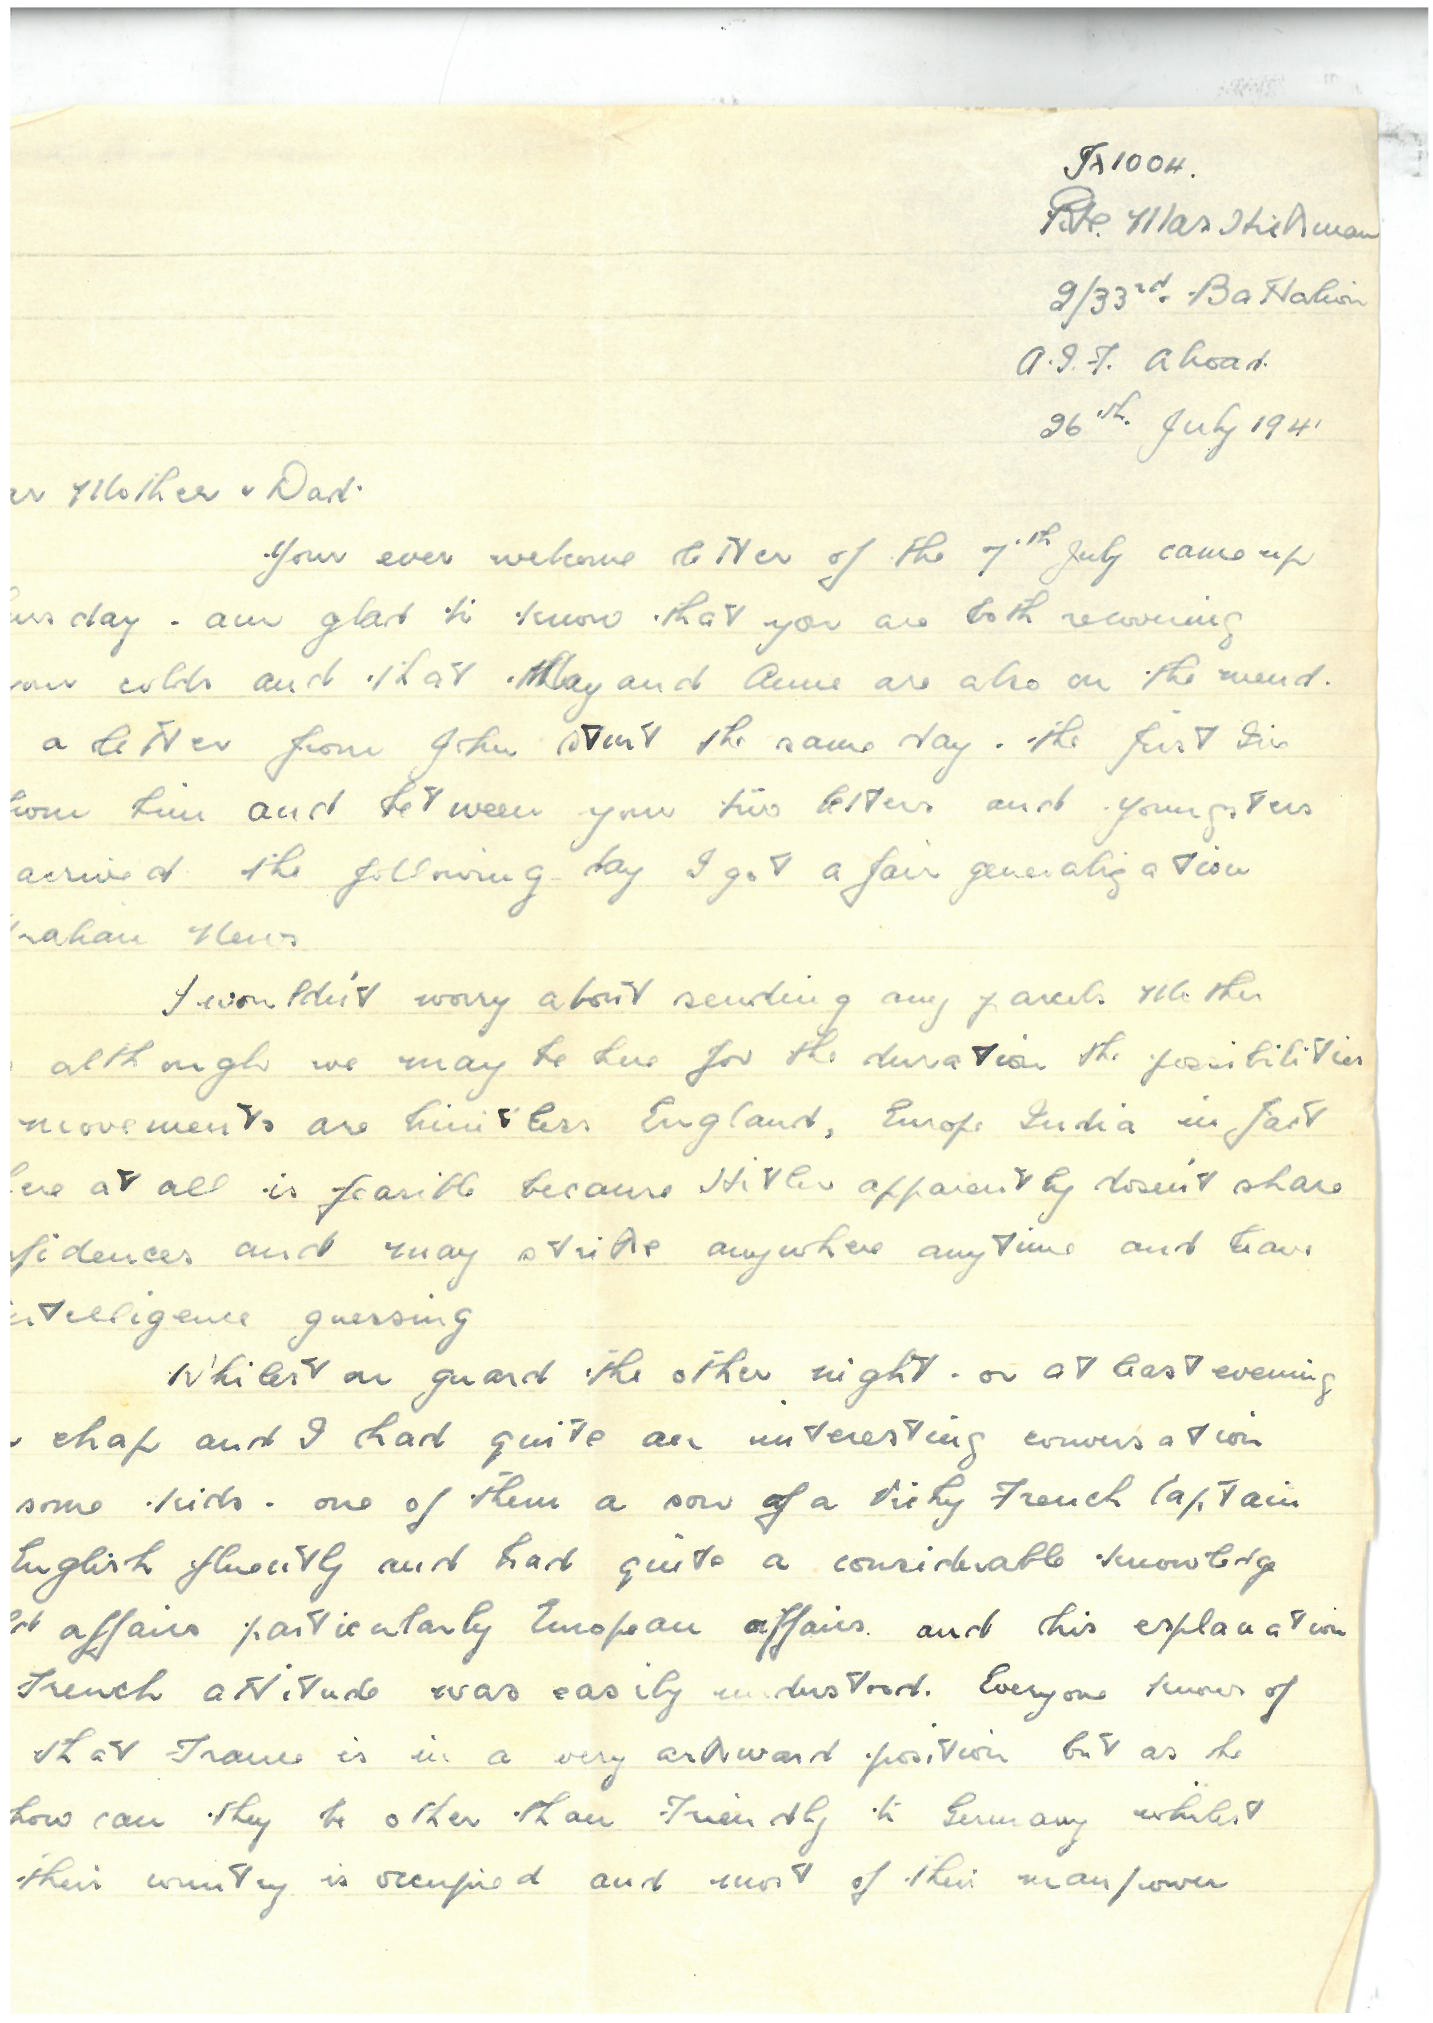 Tx1004.
Pte. Max Hickman
2/33rd. Battalion
A.I.F. Abroad.
26th. July 1941
ar Mother & Dad.
Your ever welcome letter of the 7th July came up
ursday. am glad to know that you are both recovering
our colds and that May and Anne are also on the mend.
a letter from John the same day. the first I've
rom him and between your two letters and youngsters
arrived the following day I got a fair generalization
ralian News
I wouldn't worry about sending any parcels Mother
although we may be here for the duration the possibilities
movements are limitless England, Europe India in fact
ere at all is feasible because Hitler apparently dosen't share
fidences and may strike anywhere anytime and leave
ntelligence guessing
Whilest on guard the other night. or at least evening
chap and I had quite an interesting conversation
some kids. one of them a son of a Vichy French Captain
English fluently and had quite a considerable knowledge
ld affairs particularly European affairs. and his explanation
French attitude was easily understood. Everyone knows of
that France is in a very arkward position but as he
how can they be other than Friendly to Germany whilest
their country is occupied and most of their manpower